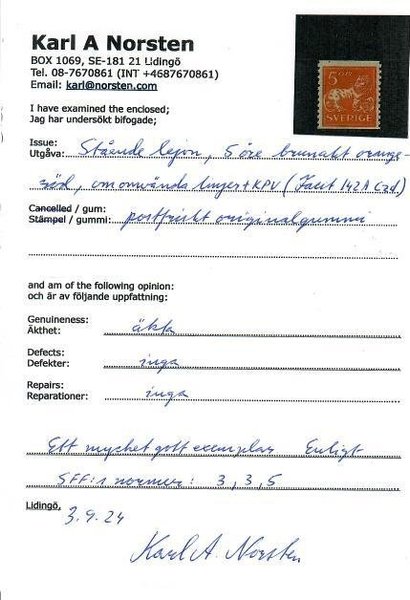 Karl A Norsten
BOX 1069, SE-181 21 Lidingö
Tel. 08-7670861 (INT +4687670861)
Email: karl@norsten.com
5 ÖRE
SVERIGE
I have examined the enclosed;
Jag har undersökt bifogade;
Issue:
Utgåva: Stående lejon, 5 öre brunakt orange-
röd, omvända linjer + KPV (Facit 142A cxz)
Cancelled / gum:
Stämpel / gummi: postfriskt originalgummi
and am of the following opinion:
och är av följande uppfattning:
Genuineness:
Äkthet: äkta
Defects:
Defekter: inga
Repairs:
Reparationer: inga
Ett mycket gott exemplar Enligt
SFF:s normer: 3, 3, 5
Lidingö, 3.9.24
Karl A. Norsten